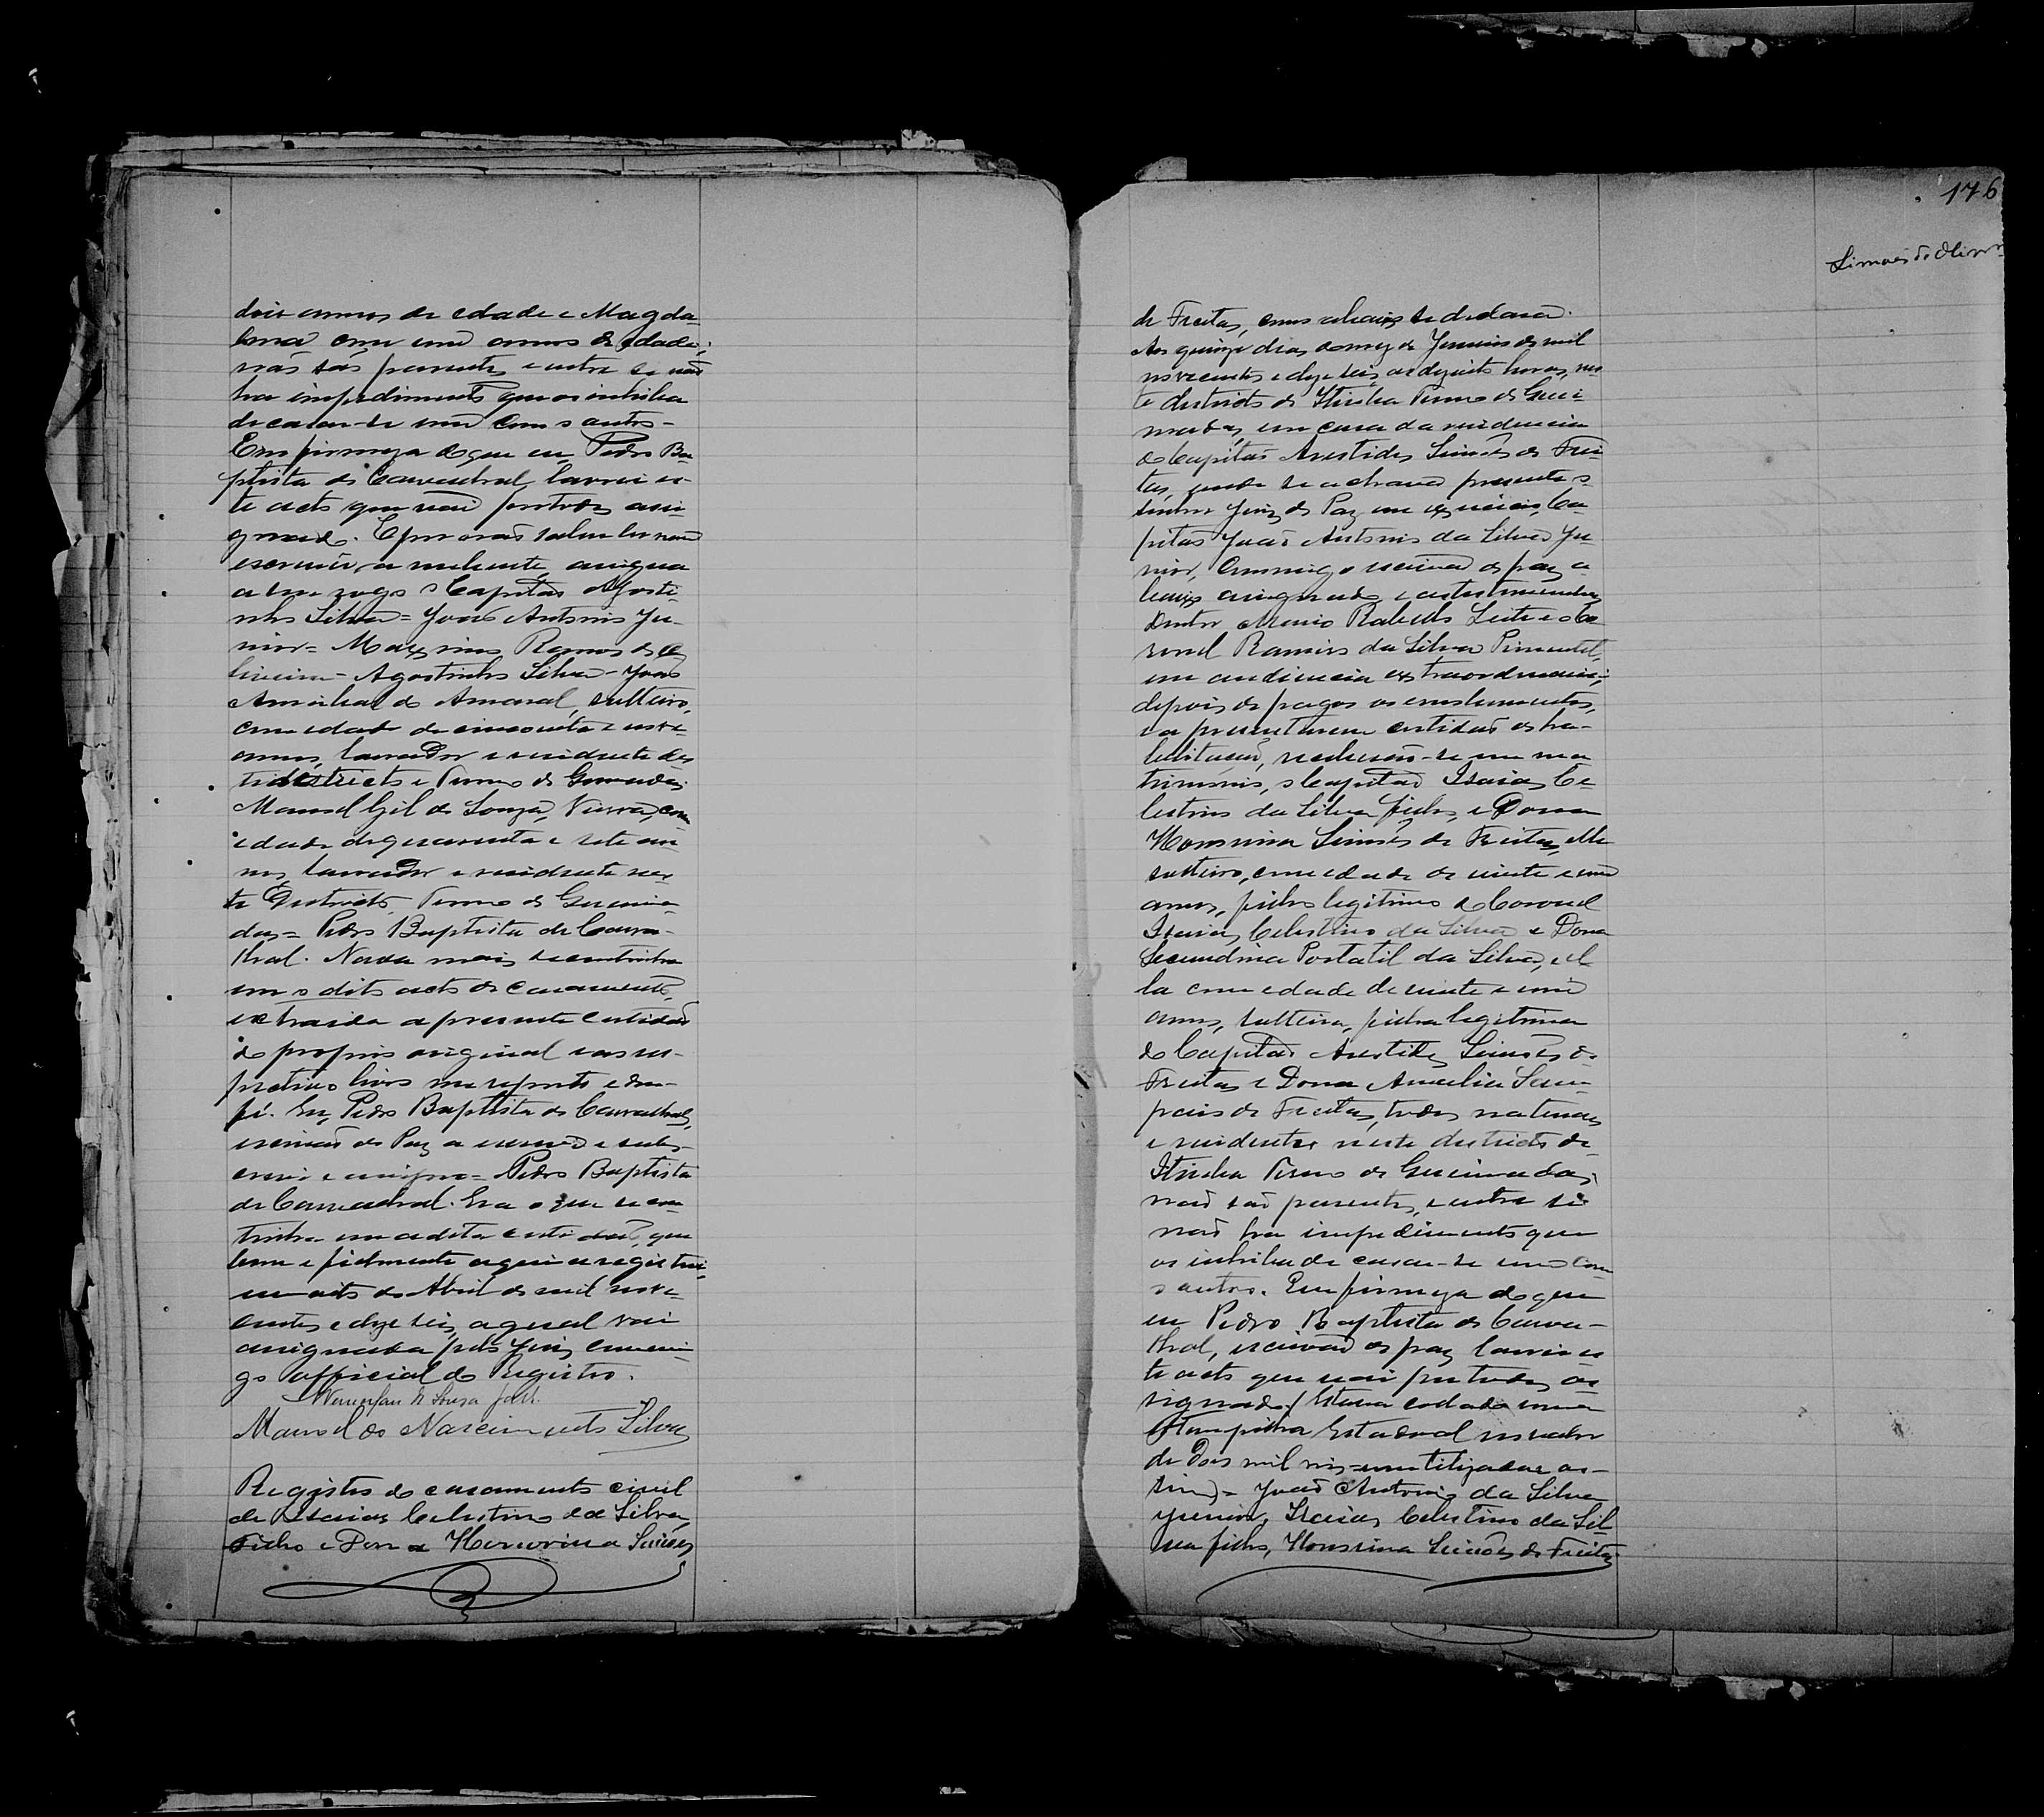 dois annos de edade e Magda-
lena com um annos de edade;
não são parentes e entre si não
ha impedimento que os inhiba
de casar-se um com o outro-
Em firmeza do que eu, Pedro Ba-
ptista de Carvalhal, lavrei es-
te acto que vai por todos assi-
gnado. E por não saber ler nem
escrever a nubente, assigna
a seu rogo o Capitão Agosti-
nho Silva = João Antonio Ju-
nior = Maximo Ramos de O-
liveira - Agostinho Silva - João
do Amaral, solteiro,
com edade de cincoenta e nove
annos, lavrador e residente des-
te districto e Termo de Queimadas
Manoel Gil de Souza, Viuvo, com
edade de quarenta e sete an-
nos, lavrador e residente nes-
te Districto, Termo de Queima-
das = Pedro Baptista de Carva-
lhal. Nada mais se continha
em o dito acto de casamento,
extraida a presente certidão
do proprio original em res-
pectivo livro me reporto e dou
fé. Eu, Pedro Baptista de Carvalhal,
escrivão de Paz a escrevi e subs-
crevi e assigno = Pedro Baptista
de Carvalhal. Era o que se con-
tinha em a dita certidão, que
bem e fielmente aqui a registrei,
em oito de Abril de mil nove-
centos e dezeseis, a qual vai
assignada pelo Juiz commi-
go official do Registro.
de Sousa
Manoel do Nascimento Silva
Registro do casamento civil
de Isaias Celestino da Silva,
Filho e Dona Honorina Simões
176
Simões de
de Freitas, como abaixo se declara.
Aos quinze dias do mez de Janeiro de mil
novecentos e dezeseis, as dezoito horas, nes-
te districto de Itiuba Termo de Quei-
madas, em casa da residencia
do Capitão Aristides Simões de Frei-
tas, onde se achava presente o
senhor Juiz de Paz em exercicio, Ca-
pitão João Antonio da Silva Ju-
nior, commigo escrivão de paz a-
baixo assignado e as testemunhas
Doutor Rabello Leite e o Co-
ronel Ramiro da Silva Pimentel,
em audiencia extraordinaria;
depois de pagos os emolumentos,
e apresentarem certidão de ha-
bilitação, receberão-se em ma-
trimonio, o Capitão Isaias Ce-
lestino da Silva filho, e Dona
Honorina Simões de Freitas, elle
solteiro, com edade de vinte e um
annos, filho legitimo do Coronel
Isaias Celestino da Silva e Dona
Secundina Portatil da Silva, el-
la com edade de vinte e um
annos, solteira, filha legitima
do Capitão Aristides Simões de
Freitas e Dona Amelia Sam-
paio de Freitas, todos naturaes
e residentes neste districto de
Itiuba Termo de Queimadas,
não são parentes, e entre si
não ha impedimento que
os inhiba de casar-se um com
o outro. Em firmeza do que
eu Pedro Baptista de Carva-
lhal, escrivão de paz lavrei es-
te acto que vai por todos as-
signado. (Estava collada uma
Estampilha Estadoal no valor
de Dois mil reis = inutilizada as-
sim) = João Antonio da Silva
Junior, Isaias Celestino da Sil-
va filho, Honorina Simões de Freitas